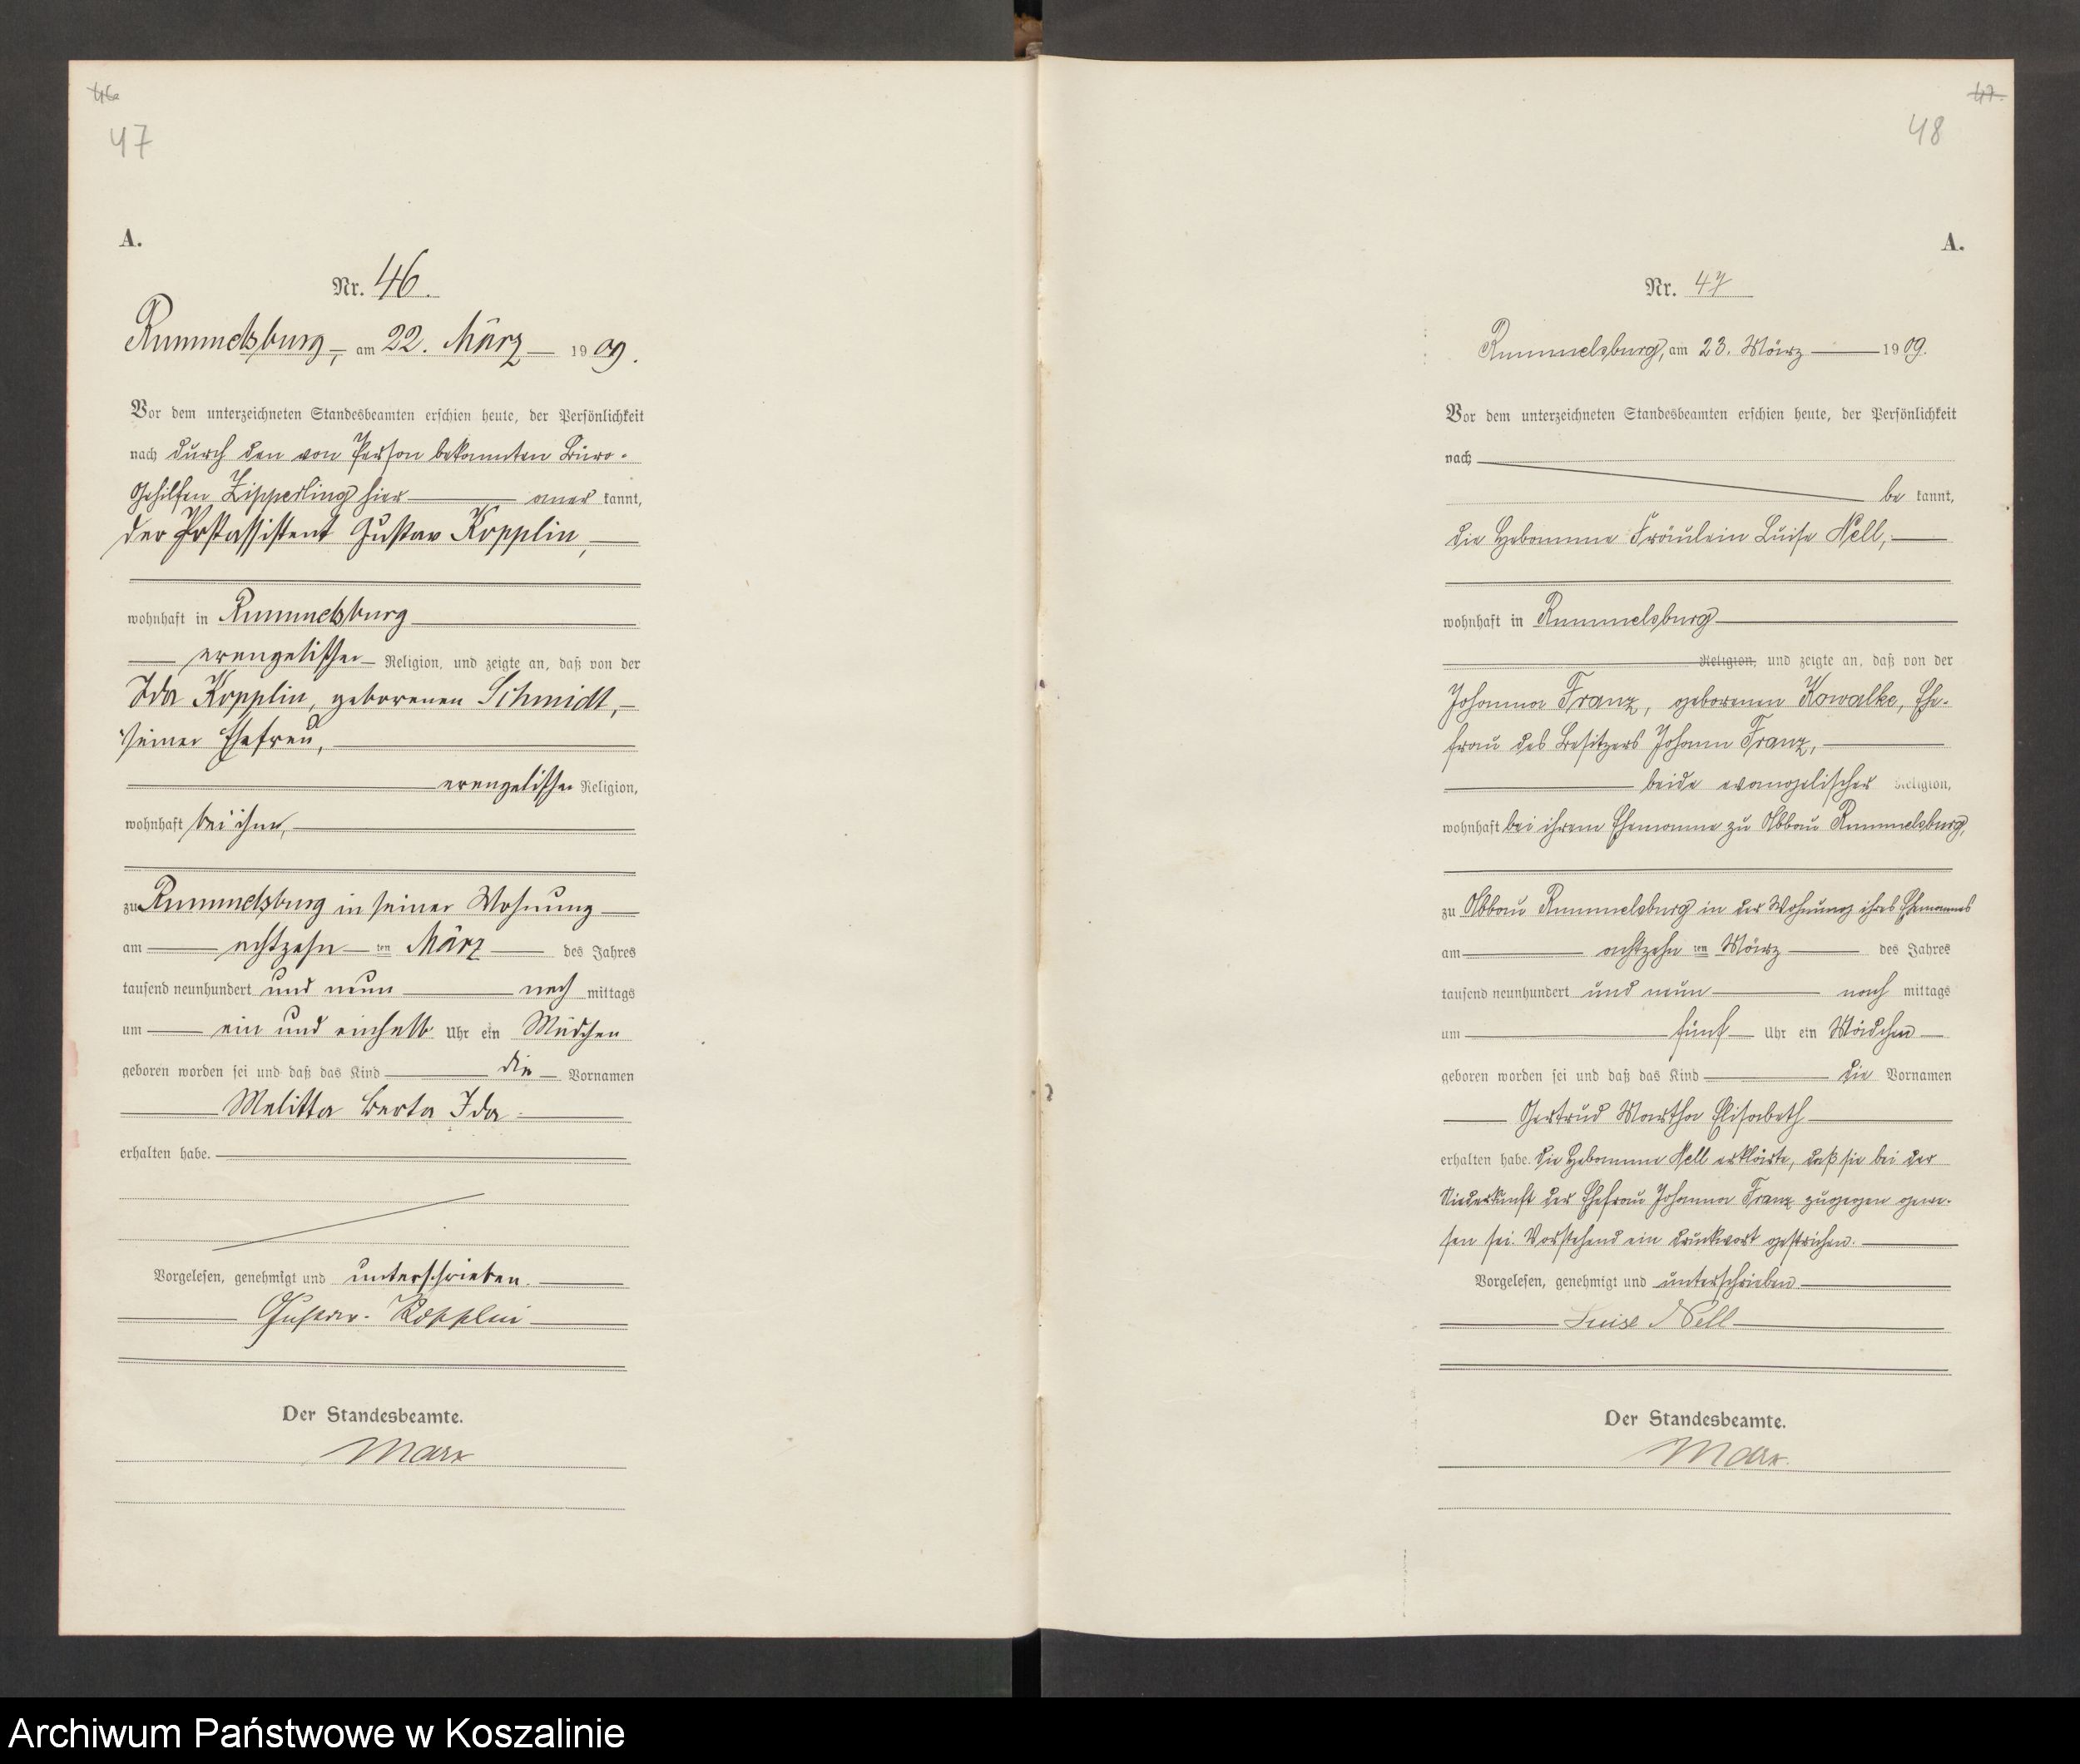 46
47
A.
Nr. 46.
Rummelsburg, am 22. März 1909.
Vor dem unterzeichneten Standesbeamten erschien heute, der Persönlichkeit
nach durch den von Person bekannten Büro-
Gehilfen Zipperling hier aner kannt,
der Postassistent Gustav Kopplin,
wohnhaft in Rummelsburg
evangelischer Religion, und zeigte an, daß von der
Ida Kopplin, geborenen Schmidt,
seiner Ehefrau,
evangelischer Religion,
wohnhaft bei ihm,
zu Rummelsburg in seiner Wohnung
am achtzehn ten März des Jahres
tausend neunhundert und neun nach mittags
um ein und einhalb Uhr ein Mädchen
geboren worden sei und daß das Kind die Vornamen
Melitta Berta Ida
erhalten habe.
Vorgelesen, genehmigt und unterschrieben.
Gustav Kopplin
Der Standesbeamte.
Marx
47.
48
A.
Nr. 47
Rummelsburg, am 23. März 1909.
Vor dem unterzeichneten Standesbeamten erschien heute, der Persönlichkeit
nach
be kannt,
die Hebamme Fräulein Luise Nell,
wohnhaft in Rummelsburg
Religion, und zeigte an, daß von der
Johanna Franz, geborenen Kowalke, Ehe-
frau des Besitzers Johann Franz,
beide evangelischer Religion,
wohnhaft bei ihrem Ehemanne zu Abbau Rummelsburg,
zu Abbau Rummelsburg in der Wohnung ihres Ehemannes
am achtzehn ten März des Jahres
tausend neunhundert und neun nach mittags
um fünf Uhr ein Mädchen
geboren worden sei und daß das Kind die Vornamen
Gertrud Martha Elisabeth
erhalten habe. Die Hebamme Nell erklärte, daß sie bei der
Niederkunft der Ehefrau Johanna Franz zugegen gewe-
sen sei. Vorstehend ein Druckwort gestrichen.
Vorgelesen, genehmigt und unterschrieben
Luise Nell
Der Standesbeamte.
Marx.
Archiwum Państwowe w Koszalinie